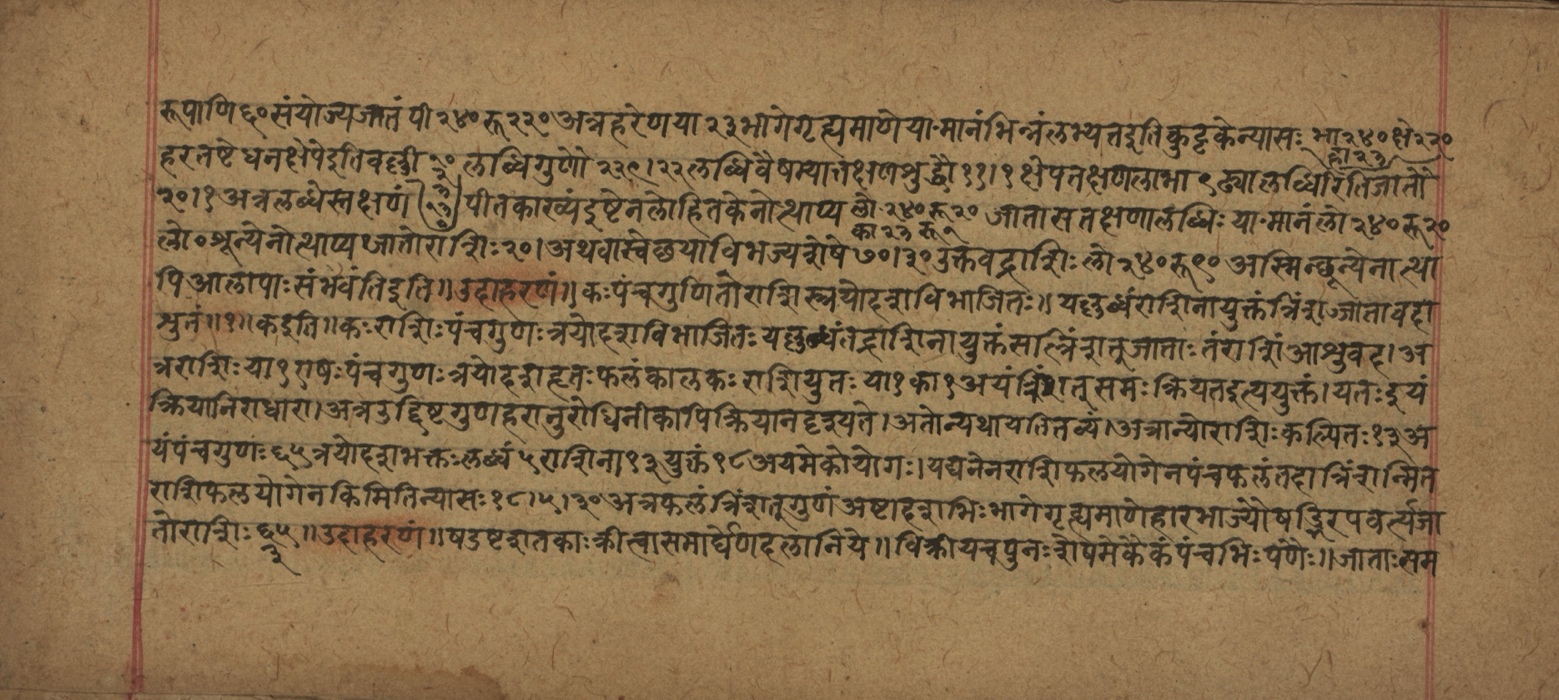 रूपाणि ६० संयोज्य जातं पी २४० रू २३० अत्र हरेण या २३ भागे गृह्यमाणे या·मानं भिन्नं लभ्यत इति कुट्टके न्यासः भा २४० क्षे २३०
हरतष्टे धनक्षेपे इति वल्ली लब्धिगुणौ २३९।२२ लब्धिवैषम्यात्तक्षणशुद्धौ १।१ क्षेपतक्षणलाभाढ्या लब्धिरिति जातौ
२०।१ अत्र लब्धेस्तक्षणं पीतकाख्यं इष्टेन लोहितकेनोत्थाप्य लो २४० रू २० जाता सतक्षणा लब्धिः या·मानं लो २४० रू २०
लो० शून्येनोत्थाप्य जातो राशिः २०। अथवा स्वेछया विभज्य शेषे ७०।३० उक्तवद्राशिः लो २४० रू ९० अस्मिन्छून्येनोत्था
पि आलापाः संभवंति इति॥ उदाहरणं॥ कः पंचगुणितो राशिस्त्रयोदशविभाजितः॥ यल्लब्धं राशिना युक्तं त्रिंशज्जातावदा
शुतं॥१॥ क इति॥ कः राशिः पंचगुणः त्रयोदशविभाजितः यल्लब्धं तद्राशिना युक्तं सत् त्रिंशत् जाताः तं राशिं आशु वद। अ
त्र राशिः या १ एषः पंचगुणः त्रयोदशहृतः फलं कालकः राशियुतः या १ का १ अयं त्रिंशत्समः क्रियत इत्ययुक्तं। यतः इयं
क्रिया निराधारा। अत्र उद्दिष्टगुणहरानुरोधिनी कापि क्रिया न दृश्यते। अतोन्यथा यतितव्यं। अत्रान्यो राशिः कल्पितः १३ अ
यं पंचगुणः ६५ त्रयोदशभक्तः लब्धं ५ राशिना १३ युक्तं १८ अयमेको योगः। यद्यनेन राशिफलयोगेन पंच फलं तदा त्रिंशन्मित
राशिफलयोगेन किमिति न्यासः १८।५।३० अत्र फलं त्रिंशत्गुणं अष्टादशभिः भागे गृह्यमाणे हारभाज्यौ षड्भिरपवर्त्य जा
तो राशिः ६५ ३ ॥ उदाहरणं॥ षडष्टशतकाः क्रीत्वा समार्घेण दलानि ये॥ विक्रीय च पुनः शेषमेकैकं पंचभिः पणैः॥ जाताः सम